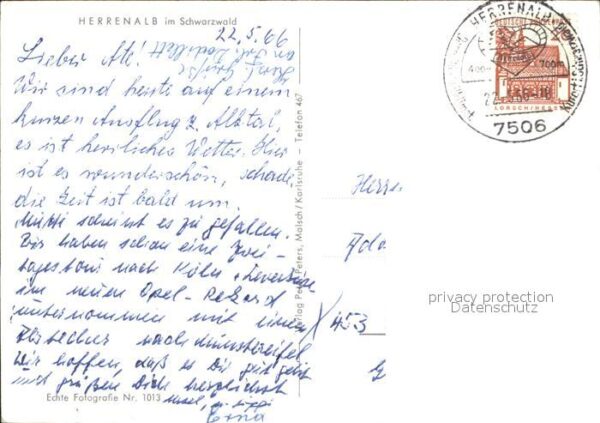 HERRENALB im Schwarzwald
22.5.66
Lieber Ate!
Wir sind heute auf einem
kurzen Ausflug z. Albtal,
es ist herrliches Wetter. Hier
ist es wunderschön, schade,
die Zeit ist bald um.
Mutti scheint es zu gefallen.
Wir haben schon eine Zwei-
tagestour nach Köln + Leverkusen
im neuen Opel-Rekord
unternommen mit einem
Abstecher nach Münstereifel
Wir hoffen, daß es Dir gut geht
und grüßen Dich herzlichst
Erna
Echte Fotografie Nr. 1013
Verlag Peter Peters, Malsch/Karlsruhe - Telefon 467
HERRENALB
400-700m
22.5.66-18
7506
LORSCH/HESSEN
Herrn
Ado
453
G
privacy protection
Datenschutz